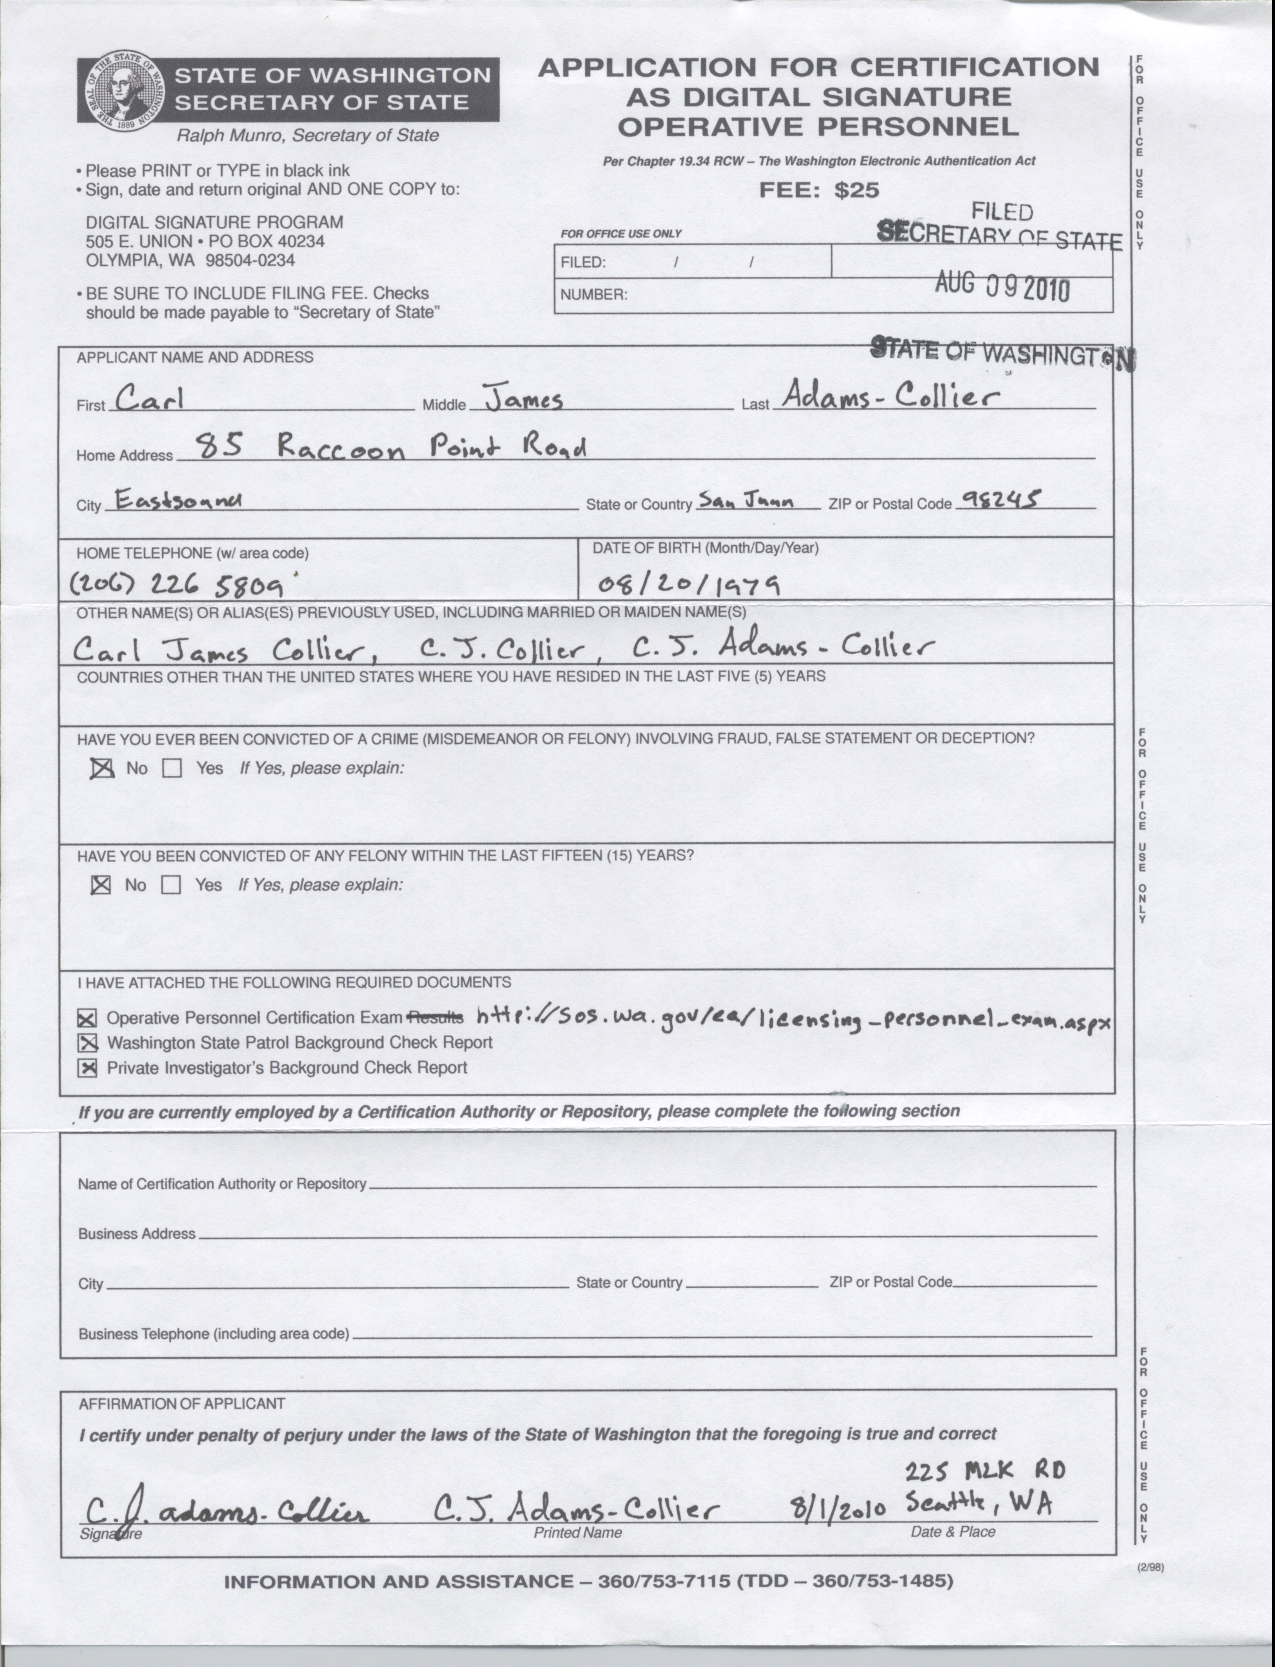 STATE OF WASHINGTON
SECRETARY OF STATE
Ralph Munro, Secretary of State
THE SEAL OF THE STATE OF WASHINGTON
1889
• Please PRINT or TYPE in black ink
• Sign, date and return original AND ONE COPY to:
DIGITAL SIGNATURE PROGRAM
505 E. UNION • PO BOX 40234
OLYMPIA, WA 98504-0234
• BE SURE TO INCLUDE FILING FEE. Checks
should be made payable to “Secretary of State”
APPLICATION FOR CERTIFICATION
AS DIGITAL SIGNATURE
OPERATIVE PERSONNEL
Per Chapter 19.34 RCW – The Washington Electronic Authentication Act
FEE: $25
FILED
SECRETARY OF STATE
AUG 09 2010
STATE OF WASHINGTON
FOR OFFICE USE ONLY
FILED: / /
NUMBER:
APPLICANT NAME AND ADDRESS
First Carl Middle James Last Adams-Collier
Home Address 85 Raccoon Point Road
City Eastsound State or Country San Juan ZIP or Postal Code 98245
HOME TELEPHONE (w/ area code) DATE OF BIRTH (Month/Day/Year)
(206) 226 5809 08/20/1979
OTHER NAME(S) OR ALIAS(ES) PREVIOUSLY USED, INCLUDING MARRIED OR MAIDEN NAME(S)
Carl James Collier, C.J. Collier, C.J. Adams-Collier
COUNTRIES OTHER THAN THE UNITED STATES WHERE YOU HAVE RESIDED IN THE LAST FIVE (5) YEARS
HAVE YOU EVER BEEN CONVICTED OF A CRIME (MISDEMEANOR OR FELONY) INVOLVING FRAUD, FALSE STATEMENT OR DECEPTION?
No Yes If Yes, please explain:
HAVE YOU BEEN CONVICTED OF ANY FELONY WITHIN THE LAST FIFTEEN (15) YEARS?
No Yes If Yes, please explain:
I HAVE ATTACHED THE FOLLOWING REQUIRED DOCUMENTS
Operative Personnel Certification Exam Results http://sos.wa.gov/ea/licensing_personnel_exam.aspx
Washington State Patrol Background Check Report
Private Investigator’s Background Check Report
If you are currently employed by a Certification Authority or Repository, please complete the following section
Name of Certification Authority or Repository
Business Address
City State or Country ZIP or Postal Code
Business Telephone (including area code)
AFFIRMATION OF APPLICANT
I certify under penalty of perjury under the laws of the State of Washington that the foregoing is true and correct
225 MLK RD
C.J. Adams-Collier C.J. Adams-Collier 8/1/2010 Seattle, WA
Signature Printed Name Date & Place
INFORMATION AND ASSISTANCE – 360/753-7115 (TDD – 360/753-1485)
FOR OFFICE USE ONLY
FOR OFFICE USE ONLY
FOR OFFICE USE ONLY
(2/98)